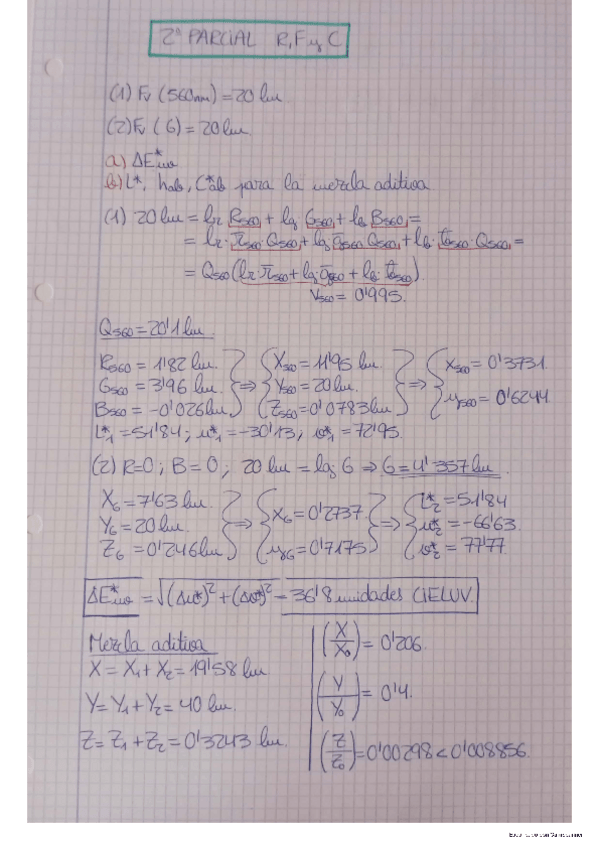 2º PARCIAL R,F y C
(1) Fv (560nm) = 20 lm.
(2) Fv (G) = 20 lm.
a) ΔE*uv
b) L*, hab, C*ab para la mezcla aditiva
(1) 20 lm = lr R560 + lg G560 + lb B560 =
= lr · r̄560 · Q560 + lg ḡ560 Q560 + lb · b̄560 · Q560 =
= Q560 (lr · r̄560 + lg · ḡ560 + lb · b̄560).
V560 = 0'995.
Q560 = 20'1 lm.
R560 = 1'82 lm. X560 = 11'95 lm. x560 = 0'3731
G560 = 3'96 lm. ⇒ Y560 = 20 lm. ⇒ y560 = 0'6244
B560 = -0'026 lm. Z560 = 0'0783 lm
L*1 = 51'84; u*1 = -30'13; v*1 = 72'95.
(2) R=0; B=0; 20 lm = lg G ⇒ G = 4'357 lm.
XG = 7'63 lm. xG = 0'2737 L*2 = 51'84
YG = 20 lm. ⇒ yG = 0'7175 ⇒ u*2 = -66'63.
ZG = 0'246 lm v*2 = 77'77.
ΔE*uv = √(Δu*)² + (Δv*)² = 36'8 unidades CIELUV.
Mezcla aditiva
X = X1 + X2 = 19'58 lm
Y = Y1 + Y2 = 40 lm.
Z = Z1 + Z2 = 0'3243 lm.
(X/X0) = 0'206.
(Y/Y0) = 0'4.
(Z/Z0) = 0'00298 < 0'008856.